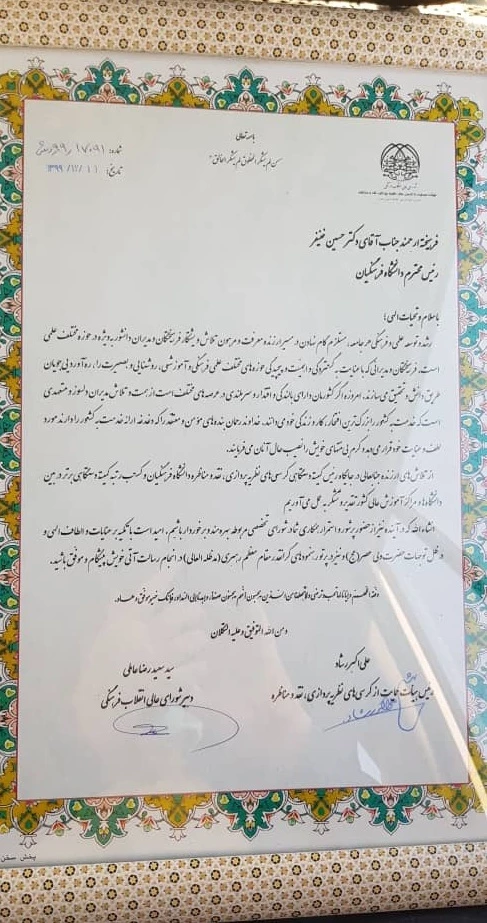 باسمه تعالی
من لم یشکر المخلوق لم یشکر الخالق
شماره: ۱۷۰۹۱/۹۹/
تاریخ: ۱۳۹۹/۱۲/۱۱
فرهیخته ارجمند جناب آقای دکتر حسین خنیفر
رئیس محترم دانشگاه فرهنگیان
با سلام و تحیات الهی؛
رشد و توسعه علمی و فرهنگی هر جامعه، مستلزم گام نهادن در مسیر ارزنده معرفت و مرهون تلاش و پشتکار فرهیختگان و مدیران دانشور به ویژه در حوزه مختلف علمی
است، فرهیختگان و مدیرانی که با عنایت به گستردگی و اهمیت و پیچیدگی حوزه های مختلف علمی فرهنگی و آموزشی، روشنایی و بصیرت را، ره آورد پی جویان
طریق دانش و تحقیق می سازند. امروزه اگر کشورمان دارای بالندگی و اقتدار و سربلندی در عرصه های مختلف است از همت و تلاش مدیران دلسوز و متعهدی
است که خدمت به کشور را بزرگ ترین افتخار کار و زندگی خود می دانند. خداوند رحمان بنده های مؤمن و معتقد را که دغدغه ارائه خدمت به کشور را دارند مورد
لطف و عنایت خود قرار می دهد و کرم بی منتهای خویش را نصیب حال آنان می فرماید.
از تلاش های ارزنده جنابعالی در جایگاه رئیس کمیته دستگاهی کرسی های نظریه پردازی، نقد و مناظره دانشگاه فرهنگیان و کسب رتبه کمیته دستگاهی برتر در بین
دانشگاه ها و مراکز آموزش عالی کشور تقدیر و تشکر به عمل می آوریم
انشاء الله که در آینده نیز از حضور پرشور و استمرار همکاری شما در شورای تخصصی مربوطه بهره مند و برخوردار باشیم. امید است با تکیه بر عنایات و الطاف الهی و
در ظل توجهات حضرت ولی عصر (عج) و نیز در پرتو رهنمودهای گرانقدر مقام معظم رهبری (مدظله العالی) در انجام رسالت آتی خویش پیشگام و موفق باشید.
و من الله التوفیق و علیه التکلان
علی اکبر رشاد
رئیس هیأت حمایت از کرسی های نظریه پردازی، نقد و مناظره
سید سعید رضا عاملی
دبیر شورای عالی انقلاب فرهنگی
پخش سخن